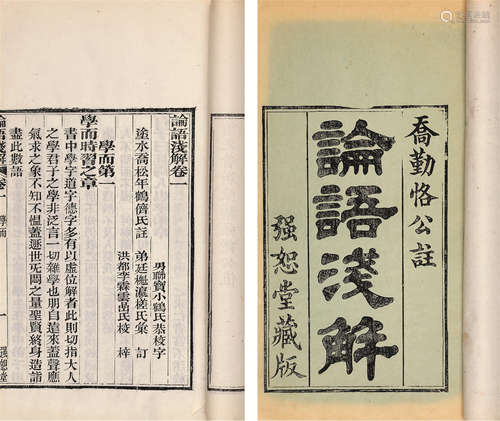 喬勤恪公註
論語淺解
强恕堂藏版
論語淺解卷一
途水喬松年鶴儕氏註
男聯寶小鶴氏恭校字
弟廷櫆瀛槎氏彙訂
洪都李霖雲嵒氏校梓
學而第一
學而時習之章
書中學字道字德字多有以虛位解者此則切指大人
之學君子之學非泛言一切雜學也朋自遠來蓋聲應
氣求之象不知不慍蓋遯世无悶之量聖賢終身造詣
盡此數語
論語淺解 卷一 學而
一
强恕堂